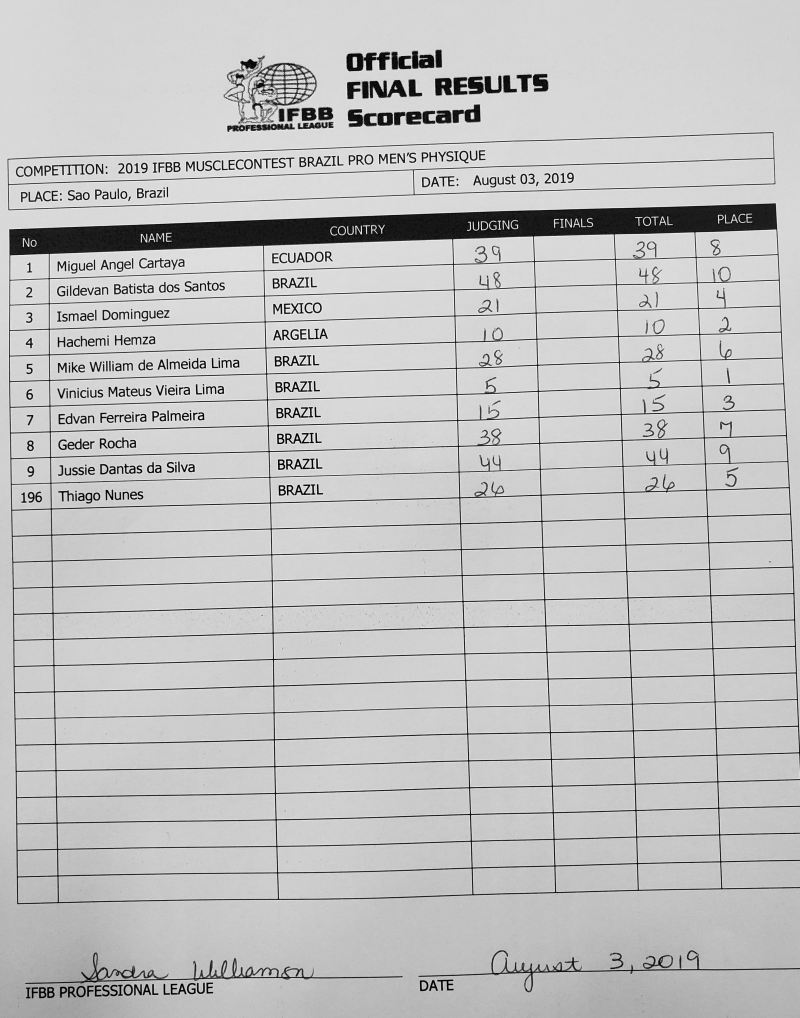 Official
FINAL RESULTS
Scorecard
IFBB
PROFESSIONAL LEAGUE
COMPETITION: 2019 IFBB MUSCLECONTEST BRAZIL PRO MEN'S PHYSIQUE
PLACE: Sao Paulo, Brazil DATE: August 03, 2019
No NAME COUNTRY JUDGING FINALS TOTAL PLACE
1 Miguel Angel Cartaya ECUADOR 39 39 8
2 Gildevan Batista dos Santos BRAZIL 48 48 10
3 Ismael Dominguez MEXICO 21 21 4
4 Hachemi Hemza ARGELIA 10 10 2
5 Mike William de Almeida Lima BRAZIL 28 28 6
6 Vinicius Mateus Vieira Lima BRAZIL 5 5 1
7 Edvan Ferreira Palmeira BRAZIL 15 15 3
8 Geder Rocha BRAZIL 38 38 7
9 Jussie Dantas da Silva BRAZIL 44 44 9
196 Thiago Nunes BRAZIL 26 26 5
Sandra Williamson August 3, 2019
IFBB PROFESSIONAL LEAGUE DATE